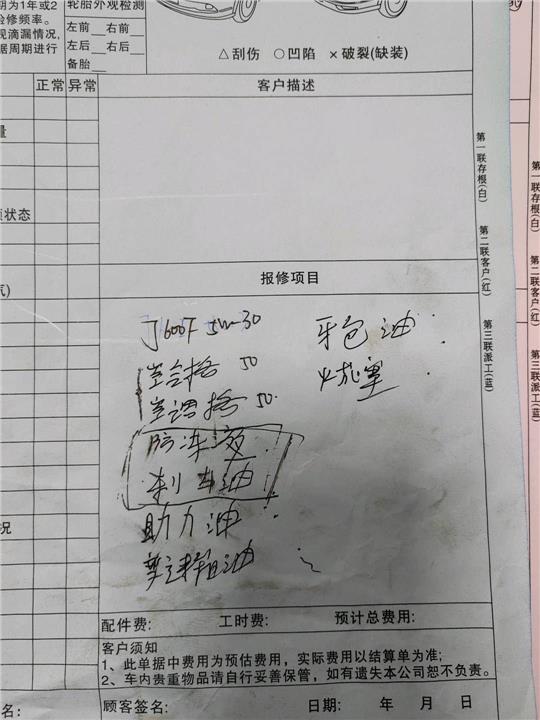 期为1年或2
检修频率。
观滴漏情况,
据周期进行
轮胎外观检测
左前 右前
左后 右后
备胎
△刮伤 ○凹陷 ×破裂(缺装)
正常 异常
客户描述
量
状态
气)
况
第一联存根(白) 第二联客户(红) 第三联派工(蓝)
第一联存根(白) 第二联客户(红) 第三联派工(蓝)
报修项目
J600F 5W-30
空合格 50
空调格 50
防冻液
刹车油
助力油
油
牙包油
火花塞
配件费: 工时费: 预计总费用:
客户须知
1、此单据中费用为预估费用，实际费用以结算单为准;
2、车内贵重物品请自行妥善保管，如有遗失本公司恕不负责。
名: 顾客签名: 日期: 年 月 日